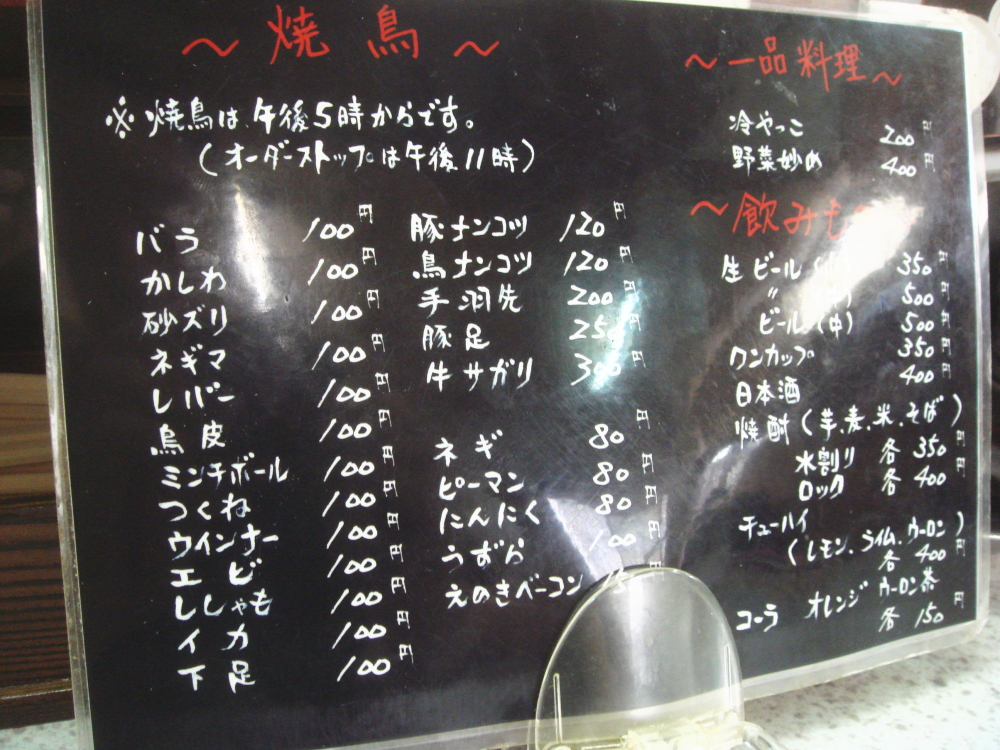 ～焼鳥～
※焼鳥は、午後5時からです。
(オーダーストップは午後11時)
バラ 100円
かしわ 100円
砂ズリ 100円
ネギマ 100円
レバー 100円
鳥皮 100円
ミンチボール 100円
つくね 100円
ウインナー 100円
エビ 100円
ししゃも 100円
イカ 100円
下足 100円
豚ナンコツ 120円
鳥ナンコツ 120円
手羽先 200円
豚足 250円
牛サガリ 300円
ネギ 80円
ピーマン 80円
にんにく 80円
うずら 100円
えのきベーコン
～一品料理～
冷やっこ 200円
野菜炒め 400円
～飲みもの
生ビール 350円
〃 500円
ビール(中) 500円
ワンカップ 350円
日本酒 400円
焼酎(芋、麦、米、そば)
水割り 各350円
ロック 各400円
チューハイ
(レモン、ライム、ウーロン)
各400円
コーラ オレンジ ウーロン茶
各150円